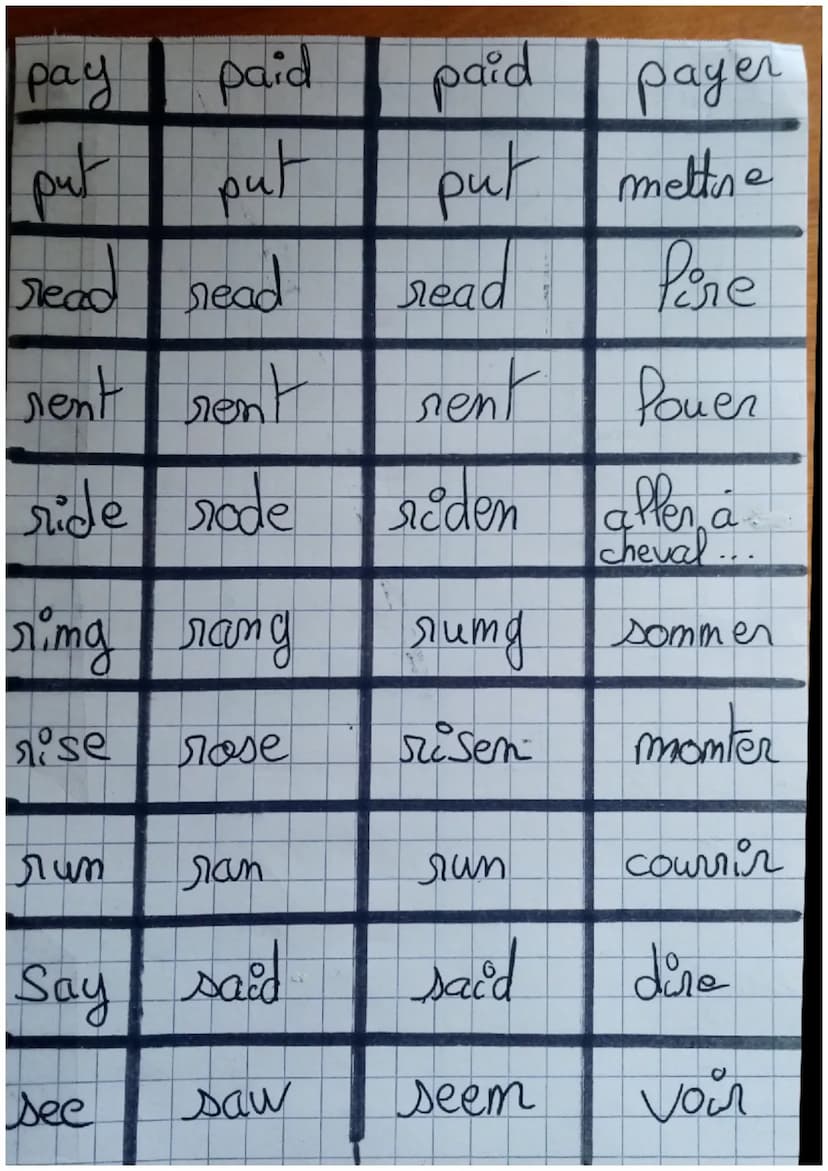 pay paid paid payer
put put put mettre
read read read lire
rent rent rent louer
ride rode riden aller à
cheval...
ring rang rung sonner
rise rose risen monter
run ran run courrir
say said said dire
see saw seen voir